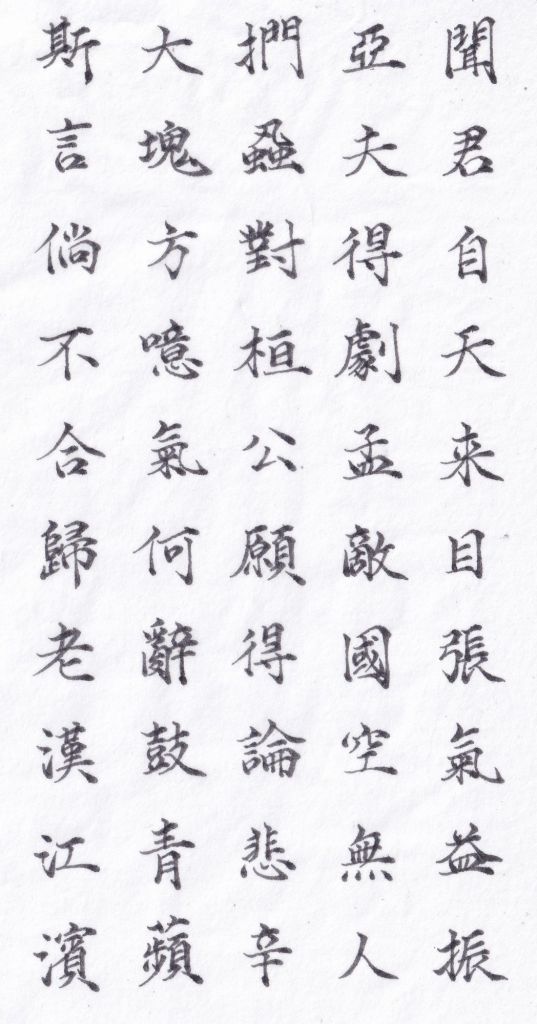 聞君自天來目張氣益振
亞夫得劇孟敵國空無人
捫蝨對桓公願得論悲辛
大塊方噫氣何辭鼓青蘋
斯言倘不合歸老漢江濱